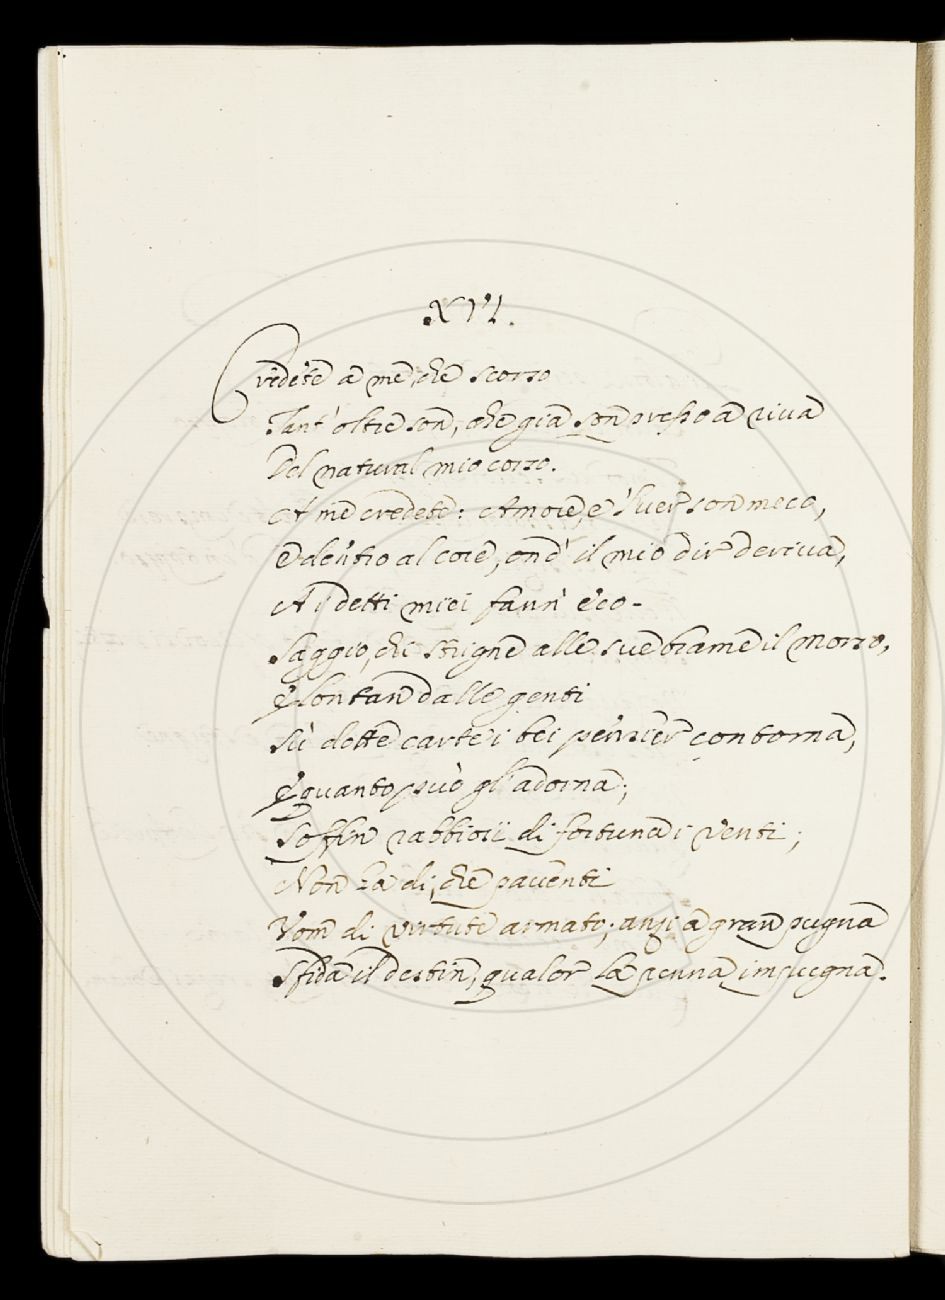 XVI.
Credete a me, che scorso
Tant' oltre son, che già son presso a riva
Del natural mio corso.
A' me credete: Amore, e 'l ver son meco,
E dentro al core, ond' il mio dir deriva,
A i detti miei fann' eco.
Saggio, chi strigne alle sue brame il morso,
E lontan dalle genti
Sù dotte carte i bei pensier contorna,
E quanto può gl' adorna;
Soffin rabbiosi di fortuna i venti;
Non sa di, che paventi
Vom di virtute armato; anzi a gran pugna
Sfida il destin, qualor la penna impugna.